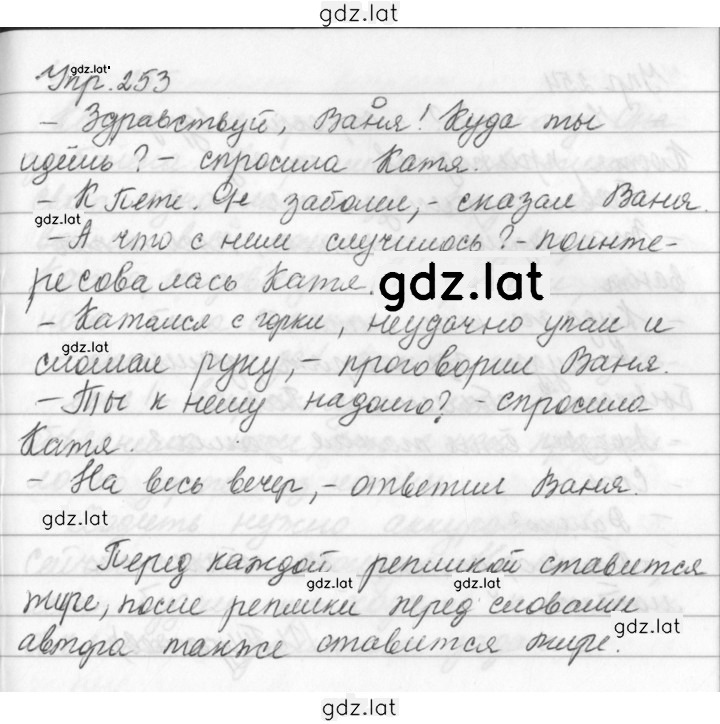 gdz.lat
gdz.lat
Упр. 253
– Здравствуй, Ваня! Куда ты
идёшь? – спросила Катя.
– К Пете. Он заболел, – сказал Ваня.
gdz.lat
– А что с ним случилось? – поинте-
ресовалась Катя.
gdz.lat
– Катался с горки, неудачно упал и
gdz.lat
сломал руку, – проговорил Ваня.
– Ты к нему надолго? – спросила
Катя.
– На весь вечер, – ответил Ваня.
gdz.lat
Перед каждой репликой ставится
gdz.lat
gdz.lat
тире, после реплики перед словами
gdz.lat
автора также ставится тире.
gdz.lat